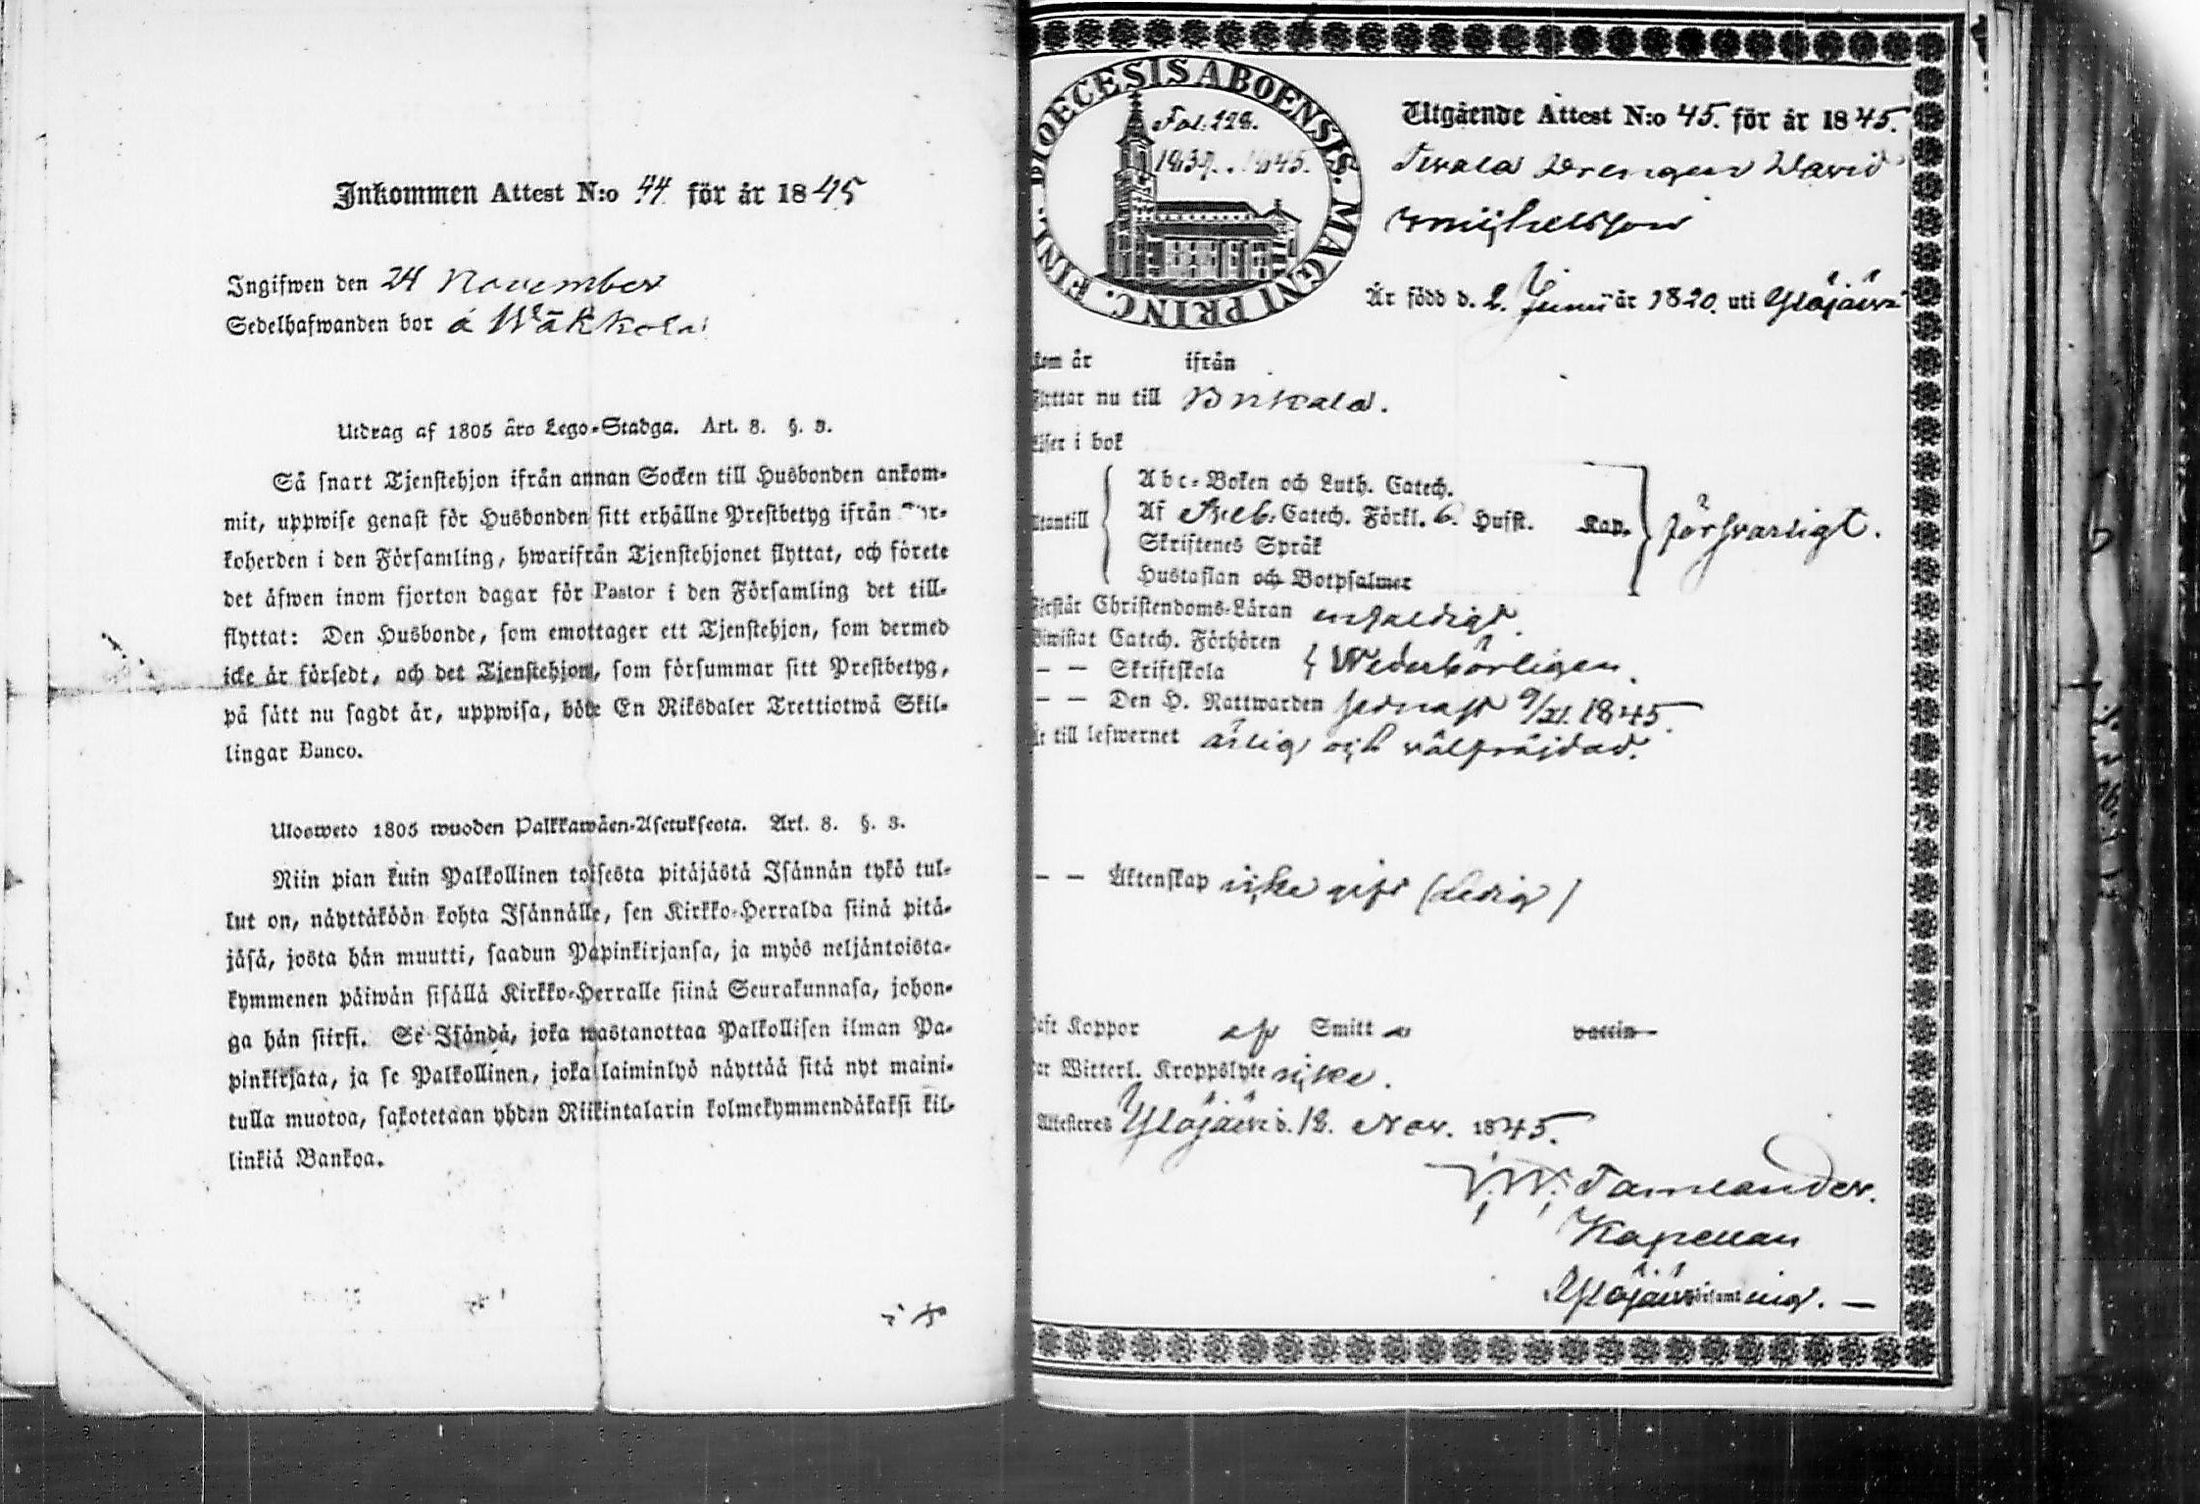 Inkommen Attest N:o 44 för år 1845
Ingifwen den 24 November
Sedelhafwanden bor å Wäkkola
Utdrag af 1805 års Lego-Stadga. Art. 8. §. 3.
Så snart Tjenstehjon ifrån annan Socken till Husbonden ankom-
mit, uppwise genast för Husbonden sitt erhållne Prestbetyg ifrån
koherden i den Församling, hwarifrån Tjenstehjonet flyttat, och förete
det äfwen inom fjorton dagar för Pastor i den Församling det till-
flyttat: Den Husbonde, som emottager ett Tjenstehjon, som dermed
icke är försedt, och det Tjenstehjon, som försummar sitt Prestbetyg,
på sätt nu sagdt är, uppwisa, böte En Riksdaler Trettiotwå Skil-
lingar Banco.
Ulosweto 1805 wuoden Palkkawäen-Asetuksesta. Art. 8. §. 3.
Niin pian kuin Palkollinen toisesta pitäjästä Isännän tykö tul-
lut on, näyttäköön kohta Isännälle, sen Kirkko-Herralda siinä pitä-
jäsä, josta hän muutti, saadun Papinkirjansa, ja myös neljäntoista-
kymmenen päiwän sisällä Kirkko-Herralle siinä Seurakunnasa, johon-
ga hän siirsi. Se Isändä, joka wastanottaa Palkollisen ilman Pa-
pinkirjata, ja se Palkollinen, joka laiminlyö näyttää sitä nyt maini-
tulla muotoa, sakotetaan yhden Riikintalarin kolmekymmendäkaksi kil-
linkiä Bankoa.
DIOECESIS ABOENSIS. MAGNI PRINC. FINL.
Fol. 128.
1839. 1845.
Utgående Attest N:o 45. för år 1845.
Drengen David
Michelsson
Är född d. 2. Junii år 1820. uti Ylöjärvi
kom år ifrån
flyttar nu till Birkala.
Läser i bok
utantill
Abc-Boken och Luth. Catech.
Af Sveb. Catech. Förkl. 6. Hufst. Kap.
Skriftenes Språk
Hustaflan och Botpsalmer
försvarligt.
Förstår Christendoms-Läran enfaldigt.
Biwistat Catech. Förhören
— — Skriftskola
Wederbörligen.
— — Den H. Nattwarden sednast 9/XI. 1845.
Är till lefwernet ärlig och välfräjdad.
— — Äktenskap icke gift (ledig)
Haft Koppor af Smitt vaccin
Har Witterl. Kroppslyte icke.
Attesteras Ylöjärvi d. 12. Nov. 1845.
Tamlander.
Kapellan
Ylöjärvi församling. —